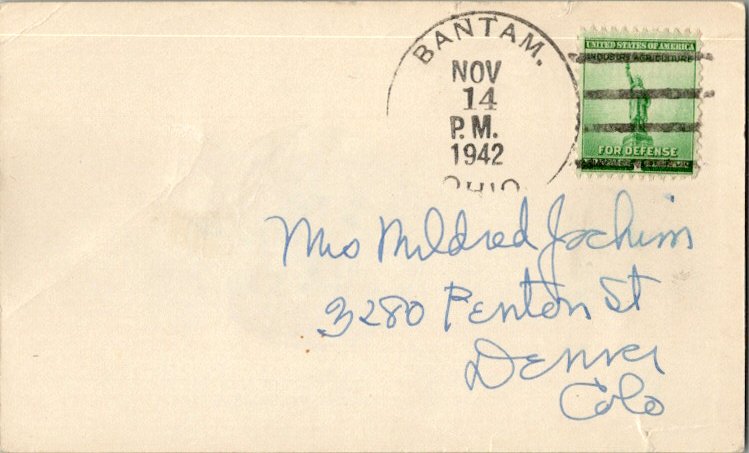 BANTAM.
NOV
14
P.M.
1942
OHIO
UNITED STATES OF AMERICA
INDUSTRY AGRICULTURE
FOR DEFENSE
Mrs Mildred Jachim
3280 Fenton St
Denver
Colo